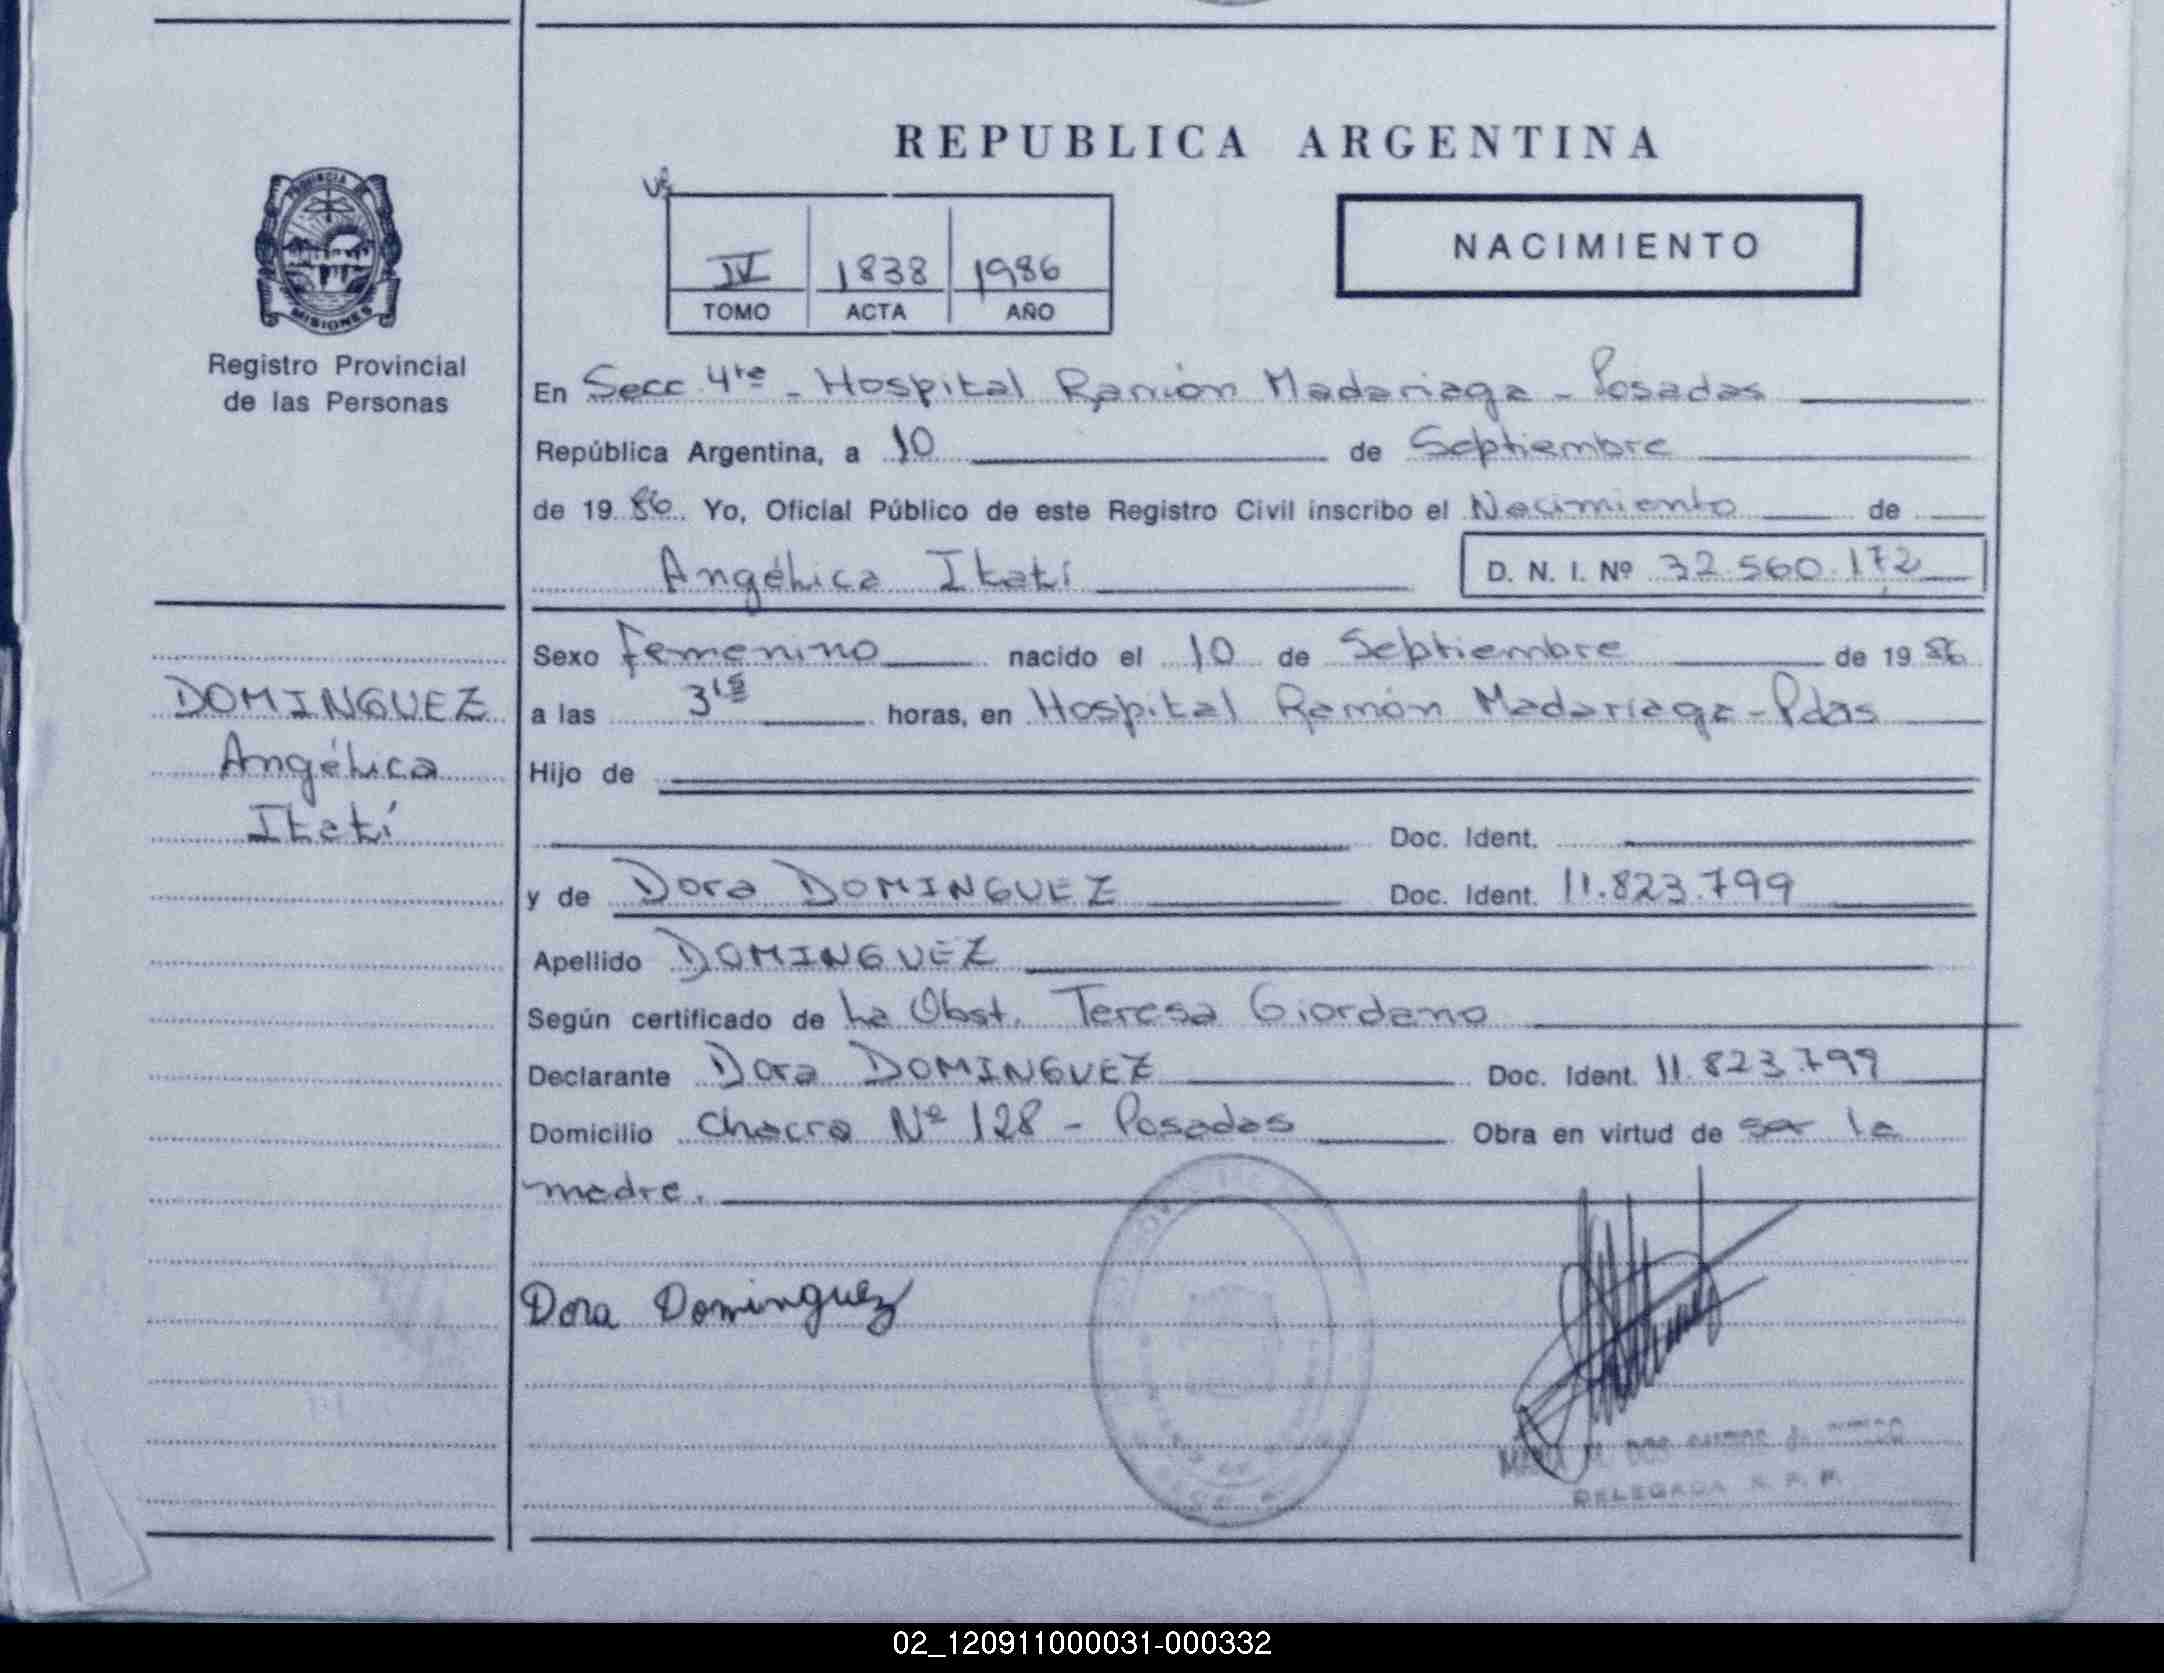 REPUBLICA ARGENTINA
PROVINCIA DE
MISIONES
Registro Provincial
de las Personas
IV 1838 1986
TOMO ACTA AÑO
NACIMIENTO
En Secc. 4ta - Hospital Ramón Madariaga - Posadas
República Argentina, a 10 de Septiembre
de 19 86. Yo, Oficial Público de este Registro Civil inscribo el Nacimiento de
Angélica Itatí D. N. I. Nº 32.560.172
Sexo femenino nacido el 10 de Septiembre de 19 86
a las 3 horas, en Hospital Ramón Madariaga - Pdas
Hijo de
Doc. Ident.
y de Dora DOMINGUEZ Doc. Ident. 11.823.799
Apellido DOMINGUEZ
Según certificado de La Obst. Teresa Giordano
Declarante Dora DOMINGUEZ Doc. Ident. 11.823.799
Domicilio Chacra Nº 128 - Posadas Obra en virtud de ser la
madre.
DOMINGUEZ
Angélica
Itatí
Dora Dominguez
DELEGADA
02_120911000031-000332